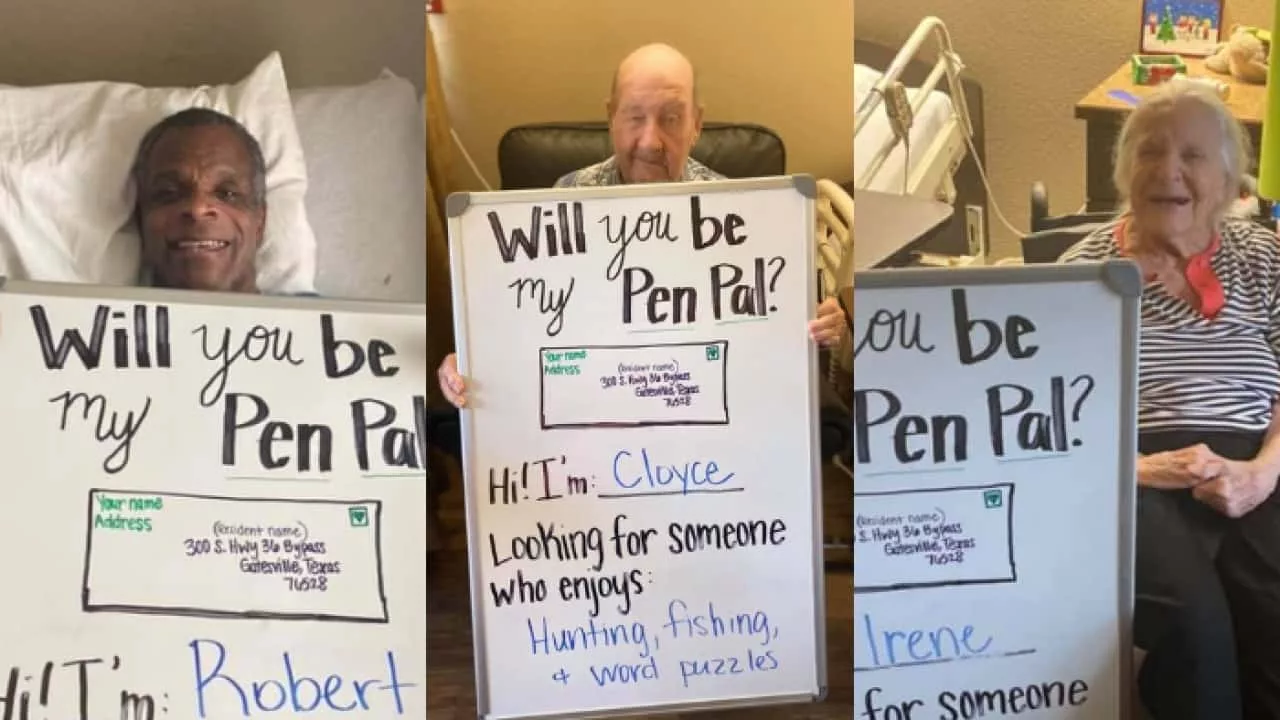 Will you be
my Pen Pal
Your name
Address
(resident name)
300 S. Hwy 36 Bypass
Gatesville, Texas
76528
Hi! I'm: Robert
Will you be
my Pen Pal?
Your name
Address
(resident name)
300 S. Hwy 36 Bypass
Gatesville, Texas
76528
Hi! I'm: Cloyce
Looking for someone
who enjoys:
Hunting, fishing,
& word puzzles
ou be
Pen Pal?
(resident name)
S. Hwy 36 Bypass
Gatesville, Texas
76528
Irene
for someone